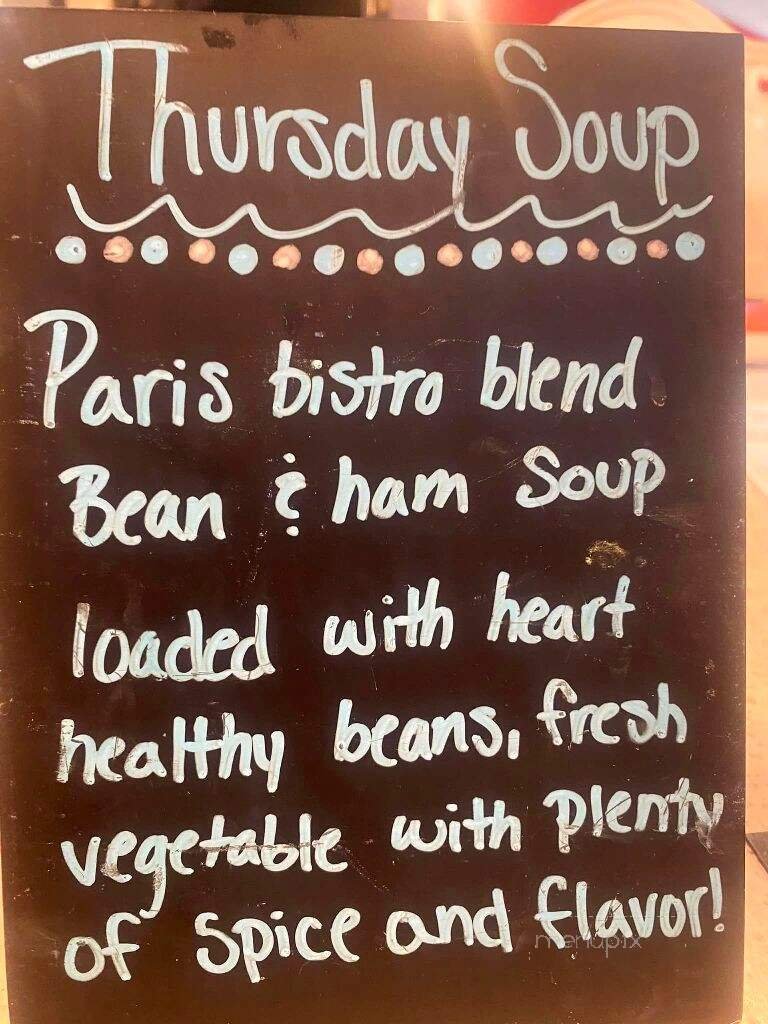 Thursday Soup
Paris bistro blend
Bean & ham Soup
loaded with heart
healthy beans, fresh
vegetable with plenty
of spice and flavor!
menupix